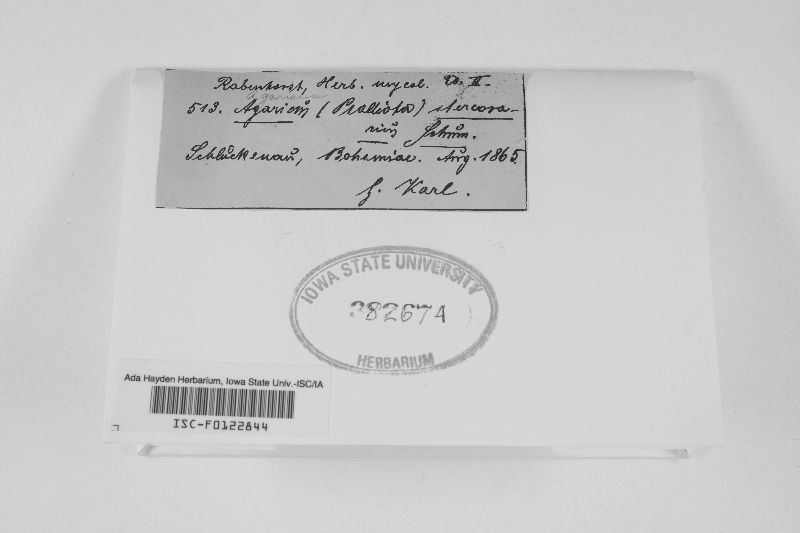 Rabenhorst, Herb. mycol. Ed. II.
Agaricus
513. Agaricus (Psalliota) stercora-
rius Schum.
Schluckenau, Bohemiae. Aug. 1865
J. Karl.
IOWA STATE UNIVERSITY
382674
HERBARIUM
Ada Hayden Herbarium, Iowa State Univ.-ISC/IA
ISC-F0122844